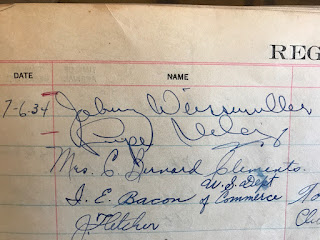 REG
DATE NAME
7-6.34 Johnny Weissmuller
Lupe Velez
Mrs. C. Bernard Clements.
U.S. Dept
I. E. Bacon of Commerce
J. Fletcher